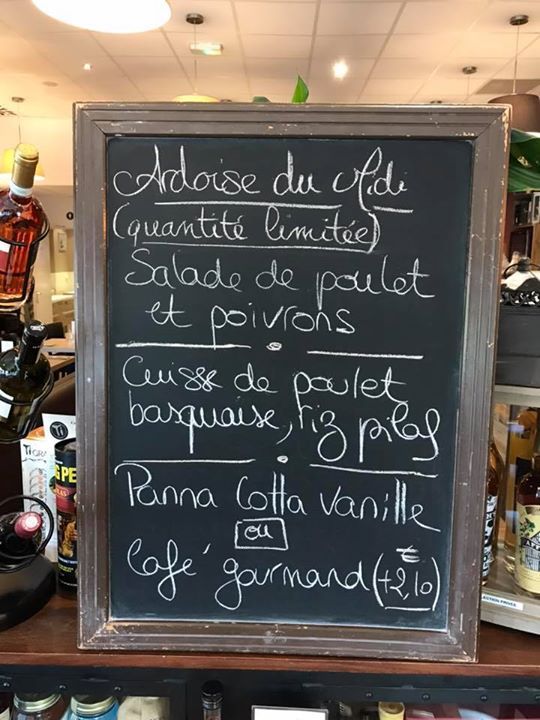 Ardoise du Midi
(quantité limitée)
Salade de poulet
et poivrons
Cuisse de poulet
basquaise, riz pilaf
Panna Cotta vanille
ou
Café gourmand (+2,10€)